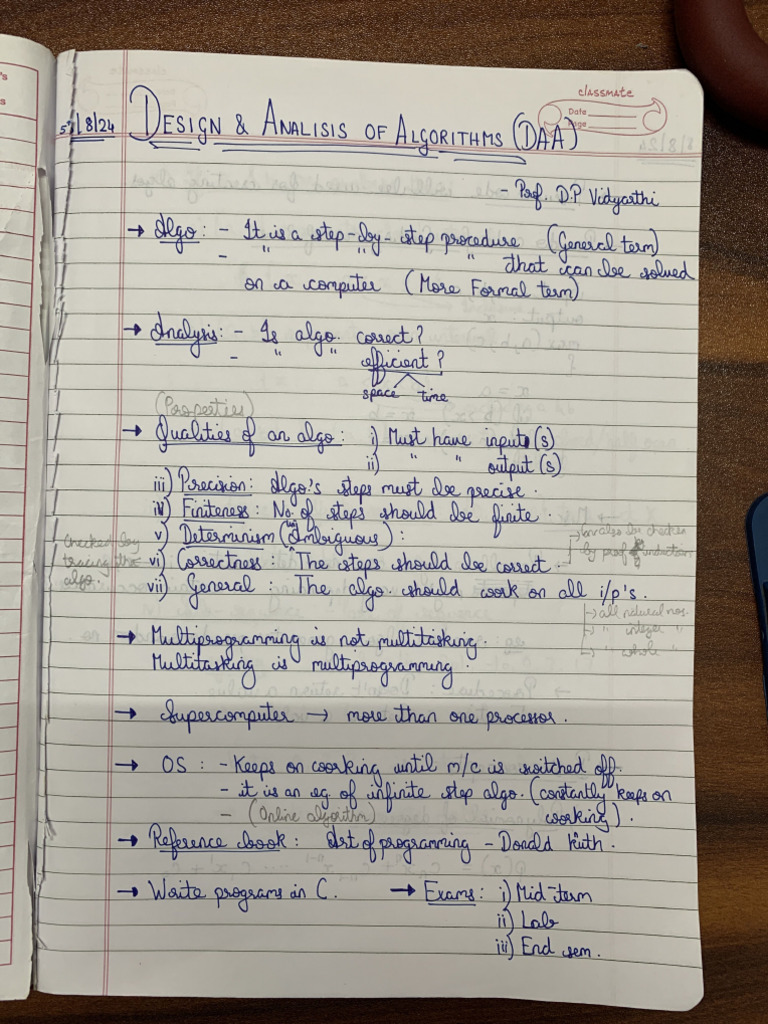 classmate
Date
Page
5/8/24
DESIGN & ANALISIS OF ALGORITHMS (DAA)
- Prof. D.P Vidyarthi
→ Algo : - It is a step-by-step procedure (General term)
- " " " that can be solved
on a computer (More Formal term)
→ Analysis: - Is algo. correct?
- " " efficient?
space time
(Properties)
→ Qualities of an algo : i) Must have input(s)
ii) " " output (s)
iii) Precision: Algo's steps must be precise.
iv) Finiteness: No. of steps should be finite.
v) Determinism (Ambiguous) :
vi) Correctness : The steps should be correct.
→ can also be checked
by proof induction
checked by
tracing the
algo.
vii) General : The algo. should work on all i/p's.
→ all natural nos.
→ " integer "
→ " whole "
→ Multiprogramming is not multitasking.
Multitasking is multiprogramming.
→ Supercomputer → more than one processor.
→ OS : - Keeps on working until m/c is switched off.
- it is an eg. of infinite step algo. (constantly keeps on
working).
- (Online algorithm)
→ Reference book : Art of programming - Donald
→ Write programs in C.
→ Exams: i) Mid-term
ii) Lab
iii) End sem.